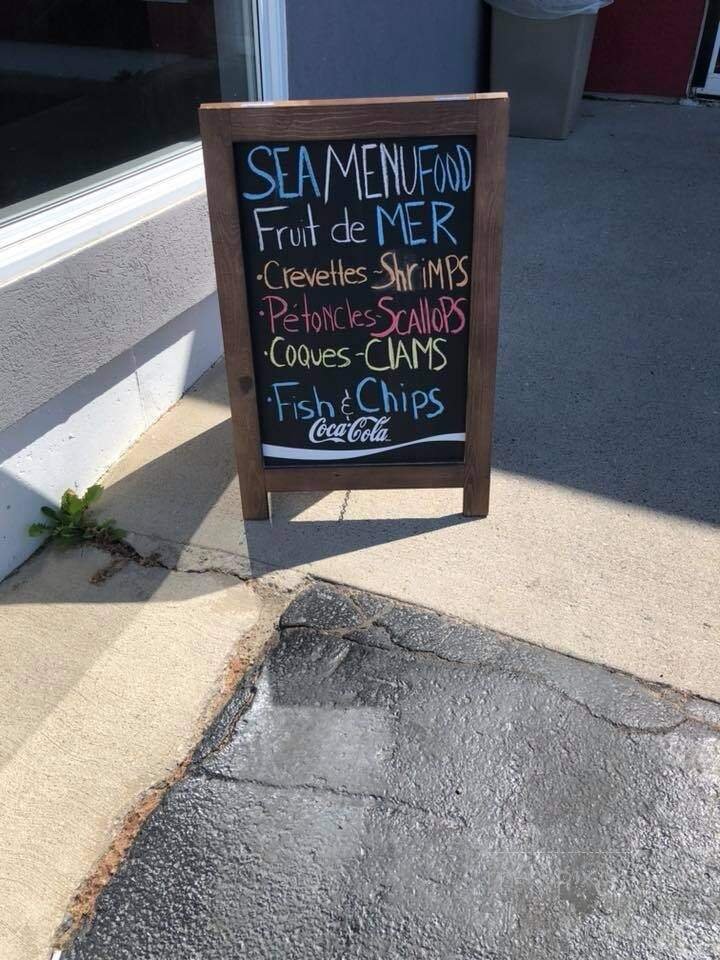 SEA MENU FOOD
Fruit de MER
·Crevettes-ShriMPS
·PétoNcles-ScAlloPS
·Coques-ClAMS
·Fish & Chips
Coca-Cola